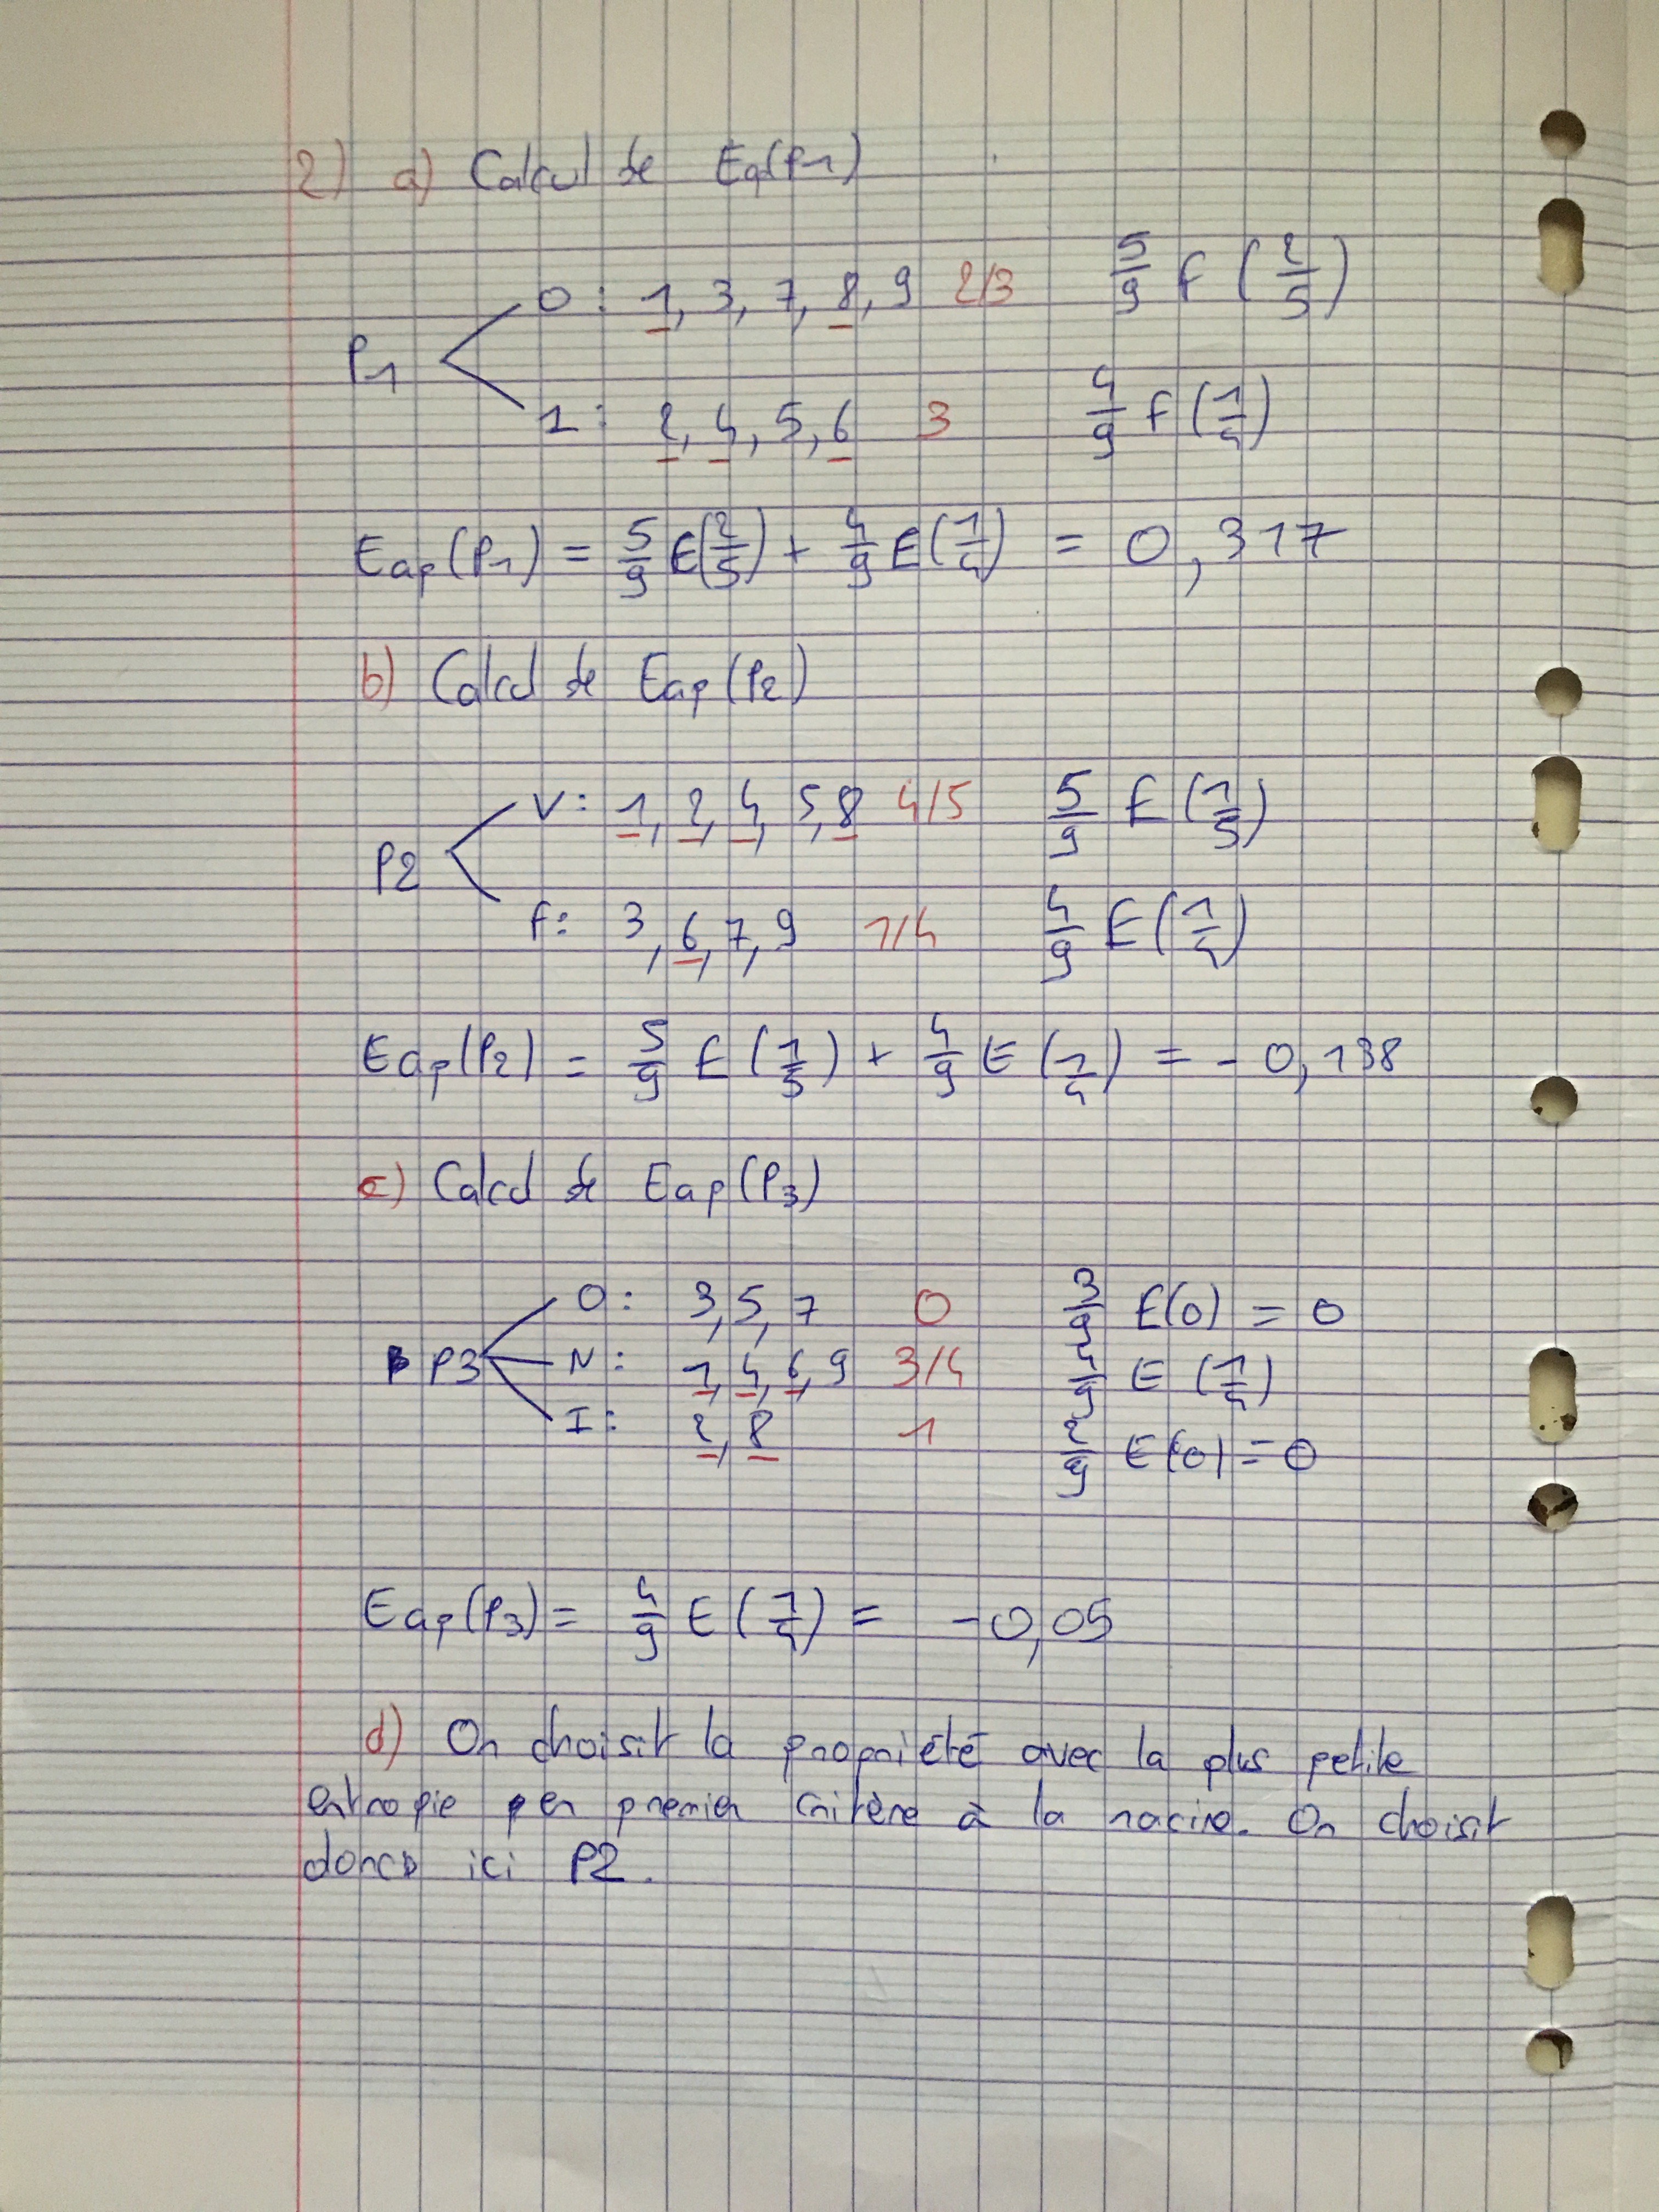 2) a) Calcul de Eap(P1)
O : 1, 3, 7, 8, 9 2/3 5/9 E (2/5)
P1
1 : 2, 4, 5, 6 3 4/9 E (1/4)
Eap(P1) = 5/9 E(2/5) + 4/9 E(1/4) = 0,317
b) Calcul de Eap(P2)
V : 1, 2, 4, 5, 8 4/5 5/9 E (1/5)
P2
F : 3, 6, 7, 9 1/4 4/9 E (1/4)
Eap(P2) = 5/9 E (1/5) + 4/9 E (1/4) = - 0,138
c) Calcul de Eap(P3)
O : 3, 5, 7 0 3/9 E(0) = 0
P3 N : 1, 4, 6, 9 3/4 4/9 E (1/4)
I : 2, 8 1 2/9 E(0) = 0
Eap(P3) = 4/9 E (1/4) = -0,05
d) On choisit la propriété avec la plus petite
entropie en premier critère à la racine. On choisit
donc ici P2.